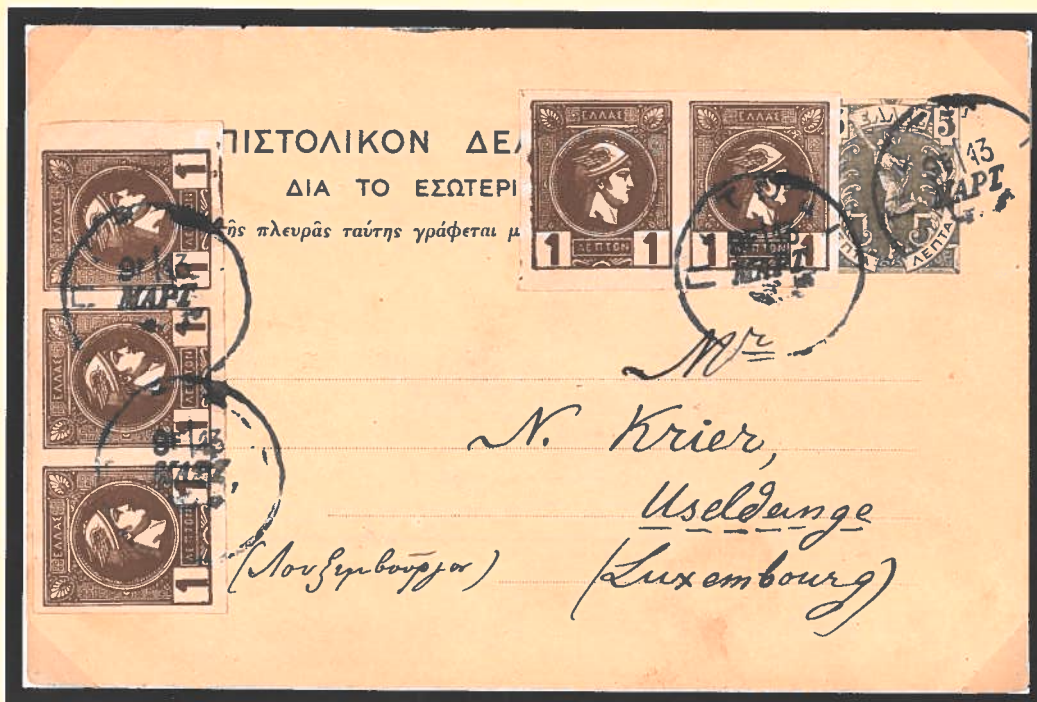 ΠΙΣΤΟΛΙΚΟΝ ΔΕΛ
ΔΙΑ ΤΟ ΕΣΩΤΕΡΙ
τῆς πλευρᾶς ταύτης γράφεται μ
ΕΛΛΑΣ
1 ΛΕΠΤΟΝ 1
ΕΛΛΑΣ
1 1
5 5
ΛΕΠΤΑ
13
ΜΑΡΤ
ΜΑΡΤ
ΕΛΛΑΣ
1 1
ΜΑΡΤ
ΕΛΛΑΣ
1 ΛΕΠΤΟΝ 1
ΕΛΛΑΣ
1 ΛΕΠΤΟΝ
Mr
N. Krier,
Useldange
(Λουξεμβούργον) (Luxembourg)